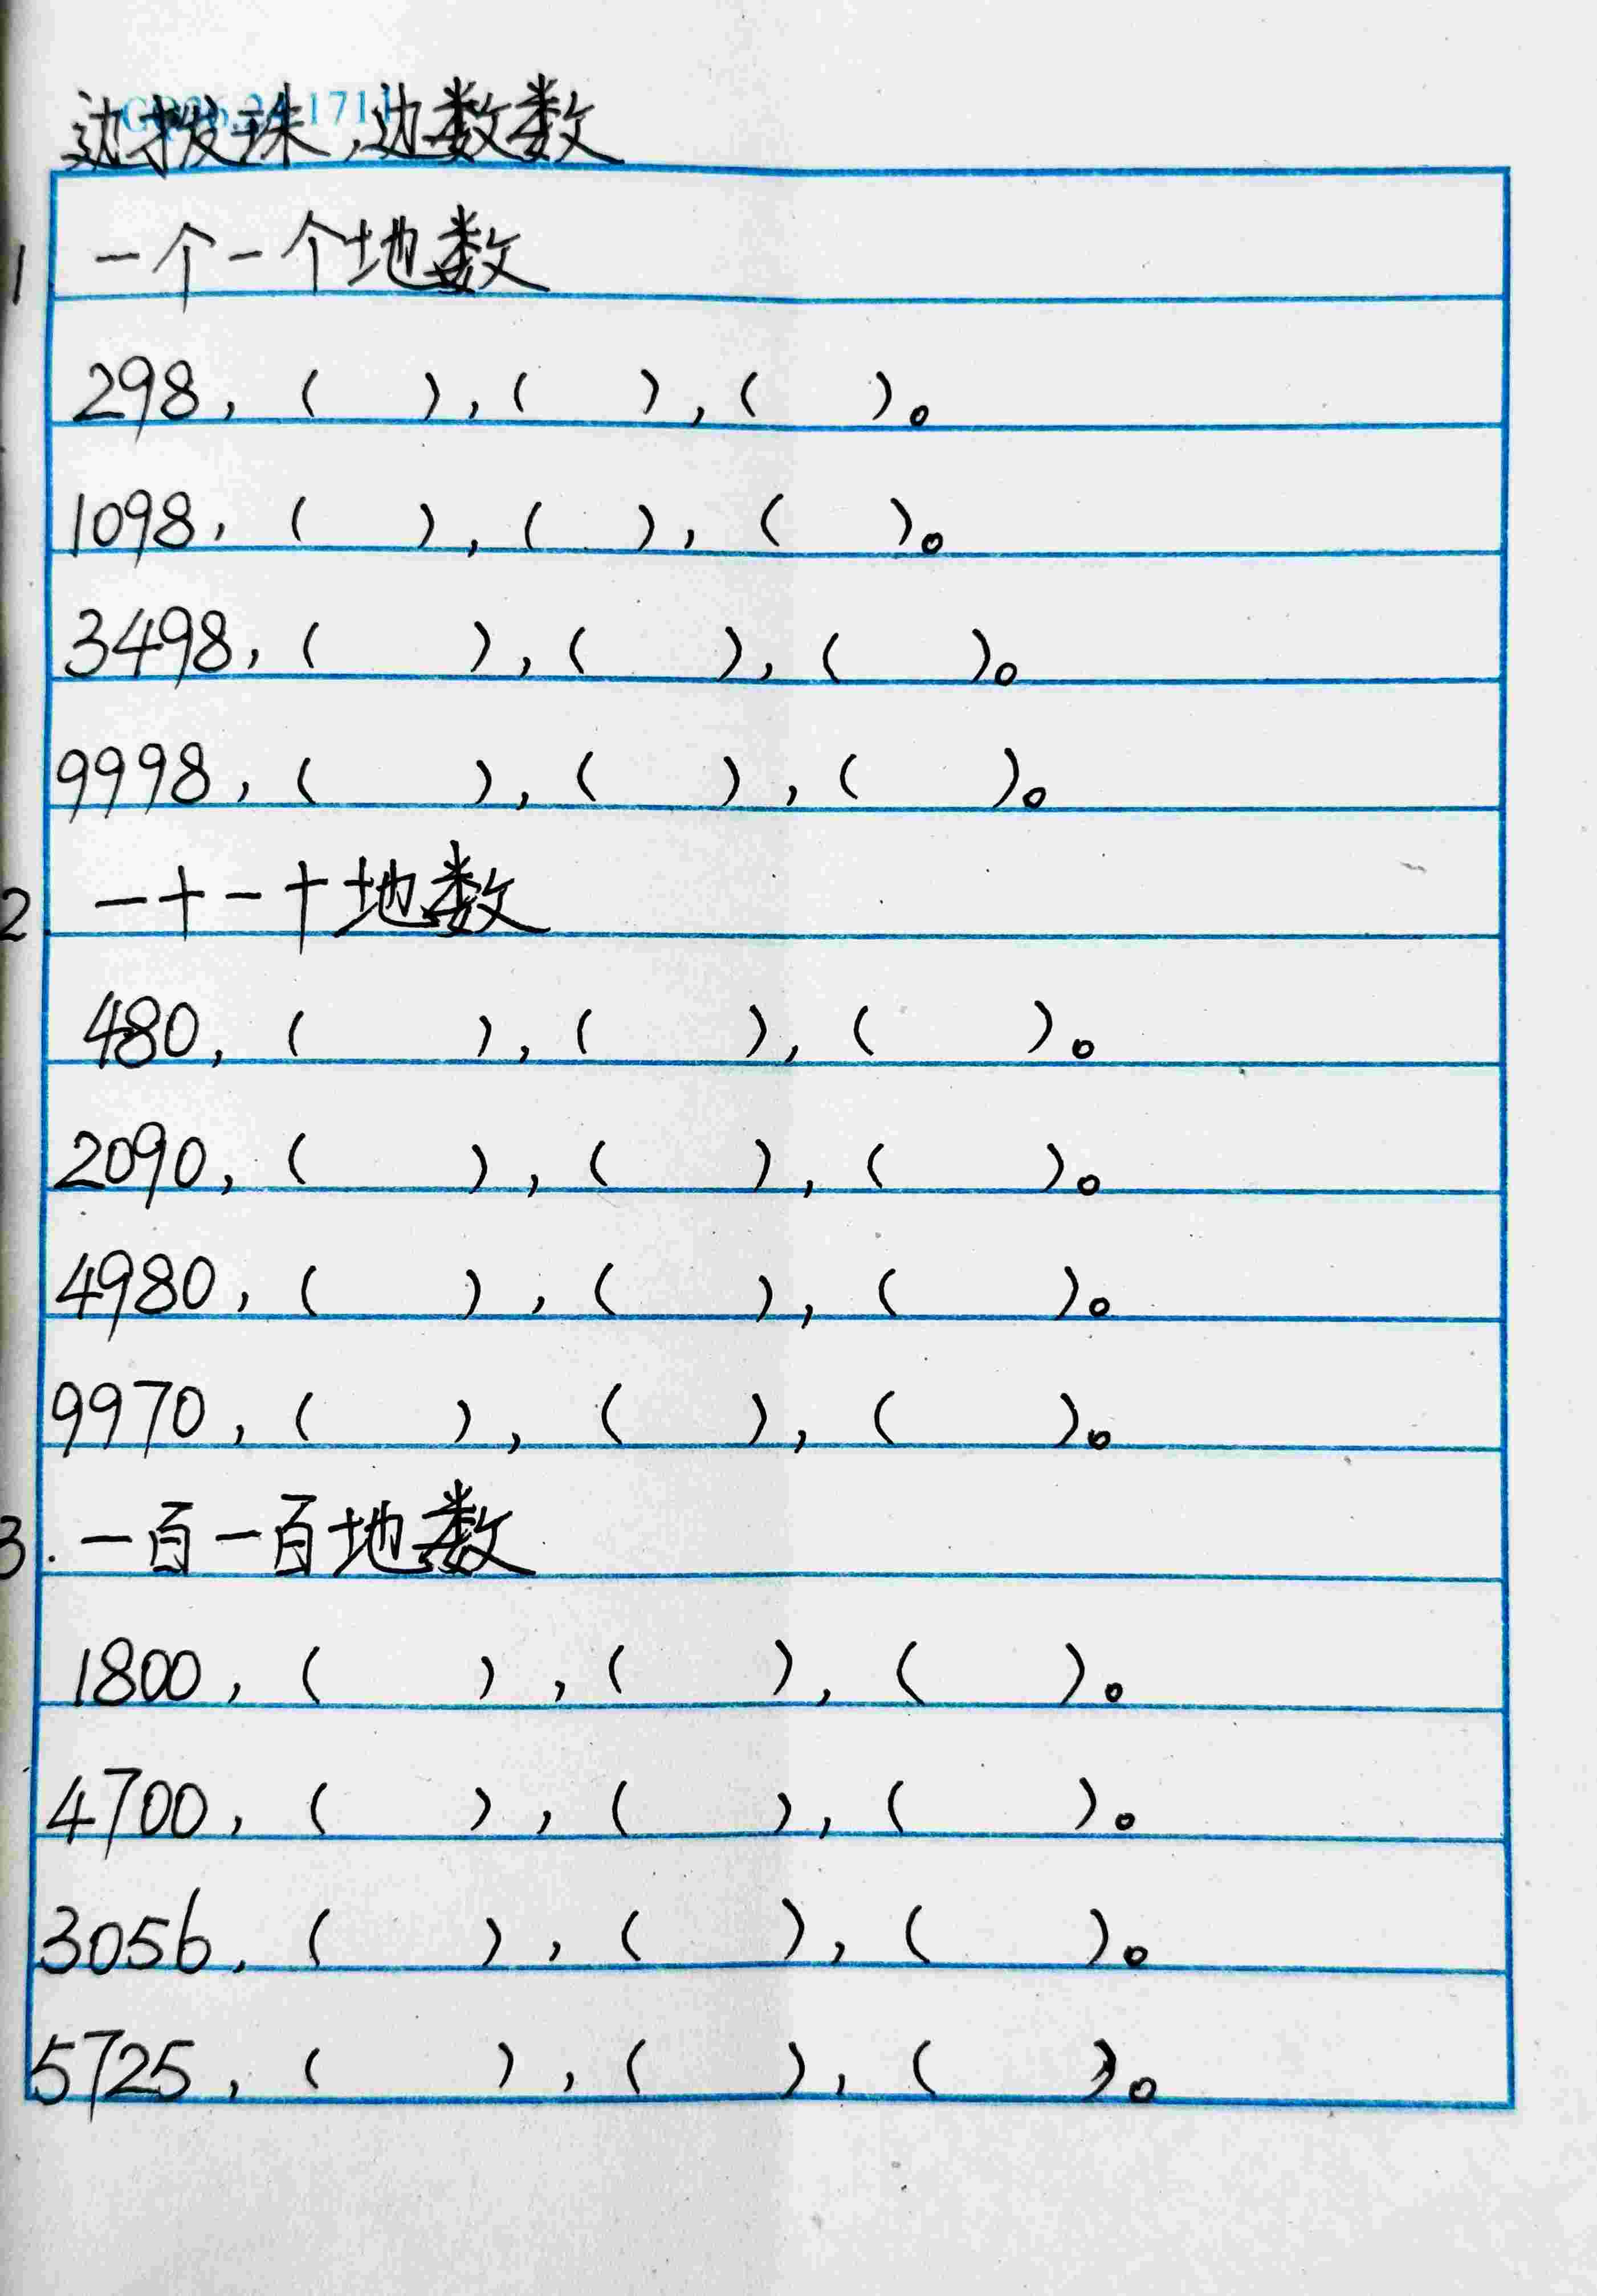 边拨珠，边数数
1 一个一个地数
298，（ ），（ ），（ ）。
1098，（ ），（ ），（ ）。
3498，（ ），（ ），（ ）。
9998，（ ），（ ），（ ）。
2 一十一十地数
480，（ ），（ ），（ ）。
2090，（ ），（ ），（ ）。
4980，（ ），（ ），（ ）。
9970，（ ），（ ），（ ）。
3. 一百一百地数
1800，（ ），（ ），（ ）。
4700，（ ），（ ），（ ）。
3056，（ ），（ ），（ ）。
5725，（ ），（ ），（ ）。